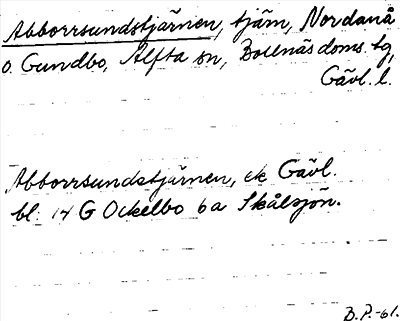 Abborrsundstjärnen, tjärn, Nordanå
o. Gundbo, Alfta sn, Bollnäs doms. tg,
Gävl. l.
Abborrsundstjärnen, ek Gävl.
bl. 14 G Ockelbo 6a Skålsjön.
B.P.-61.